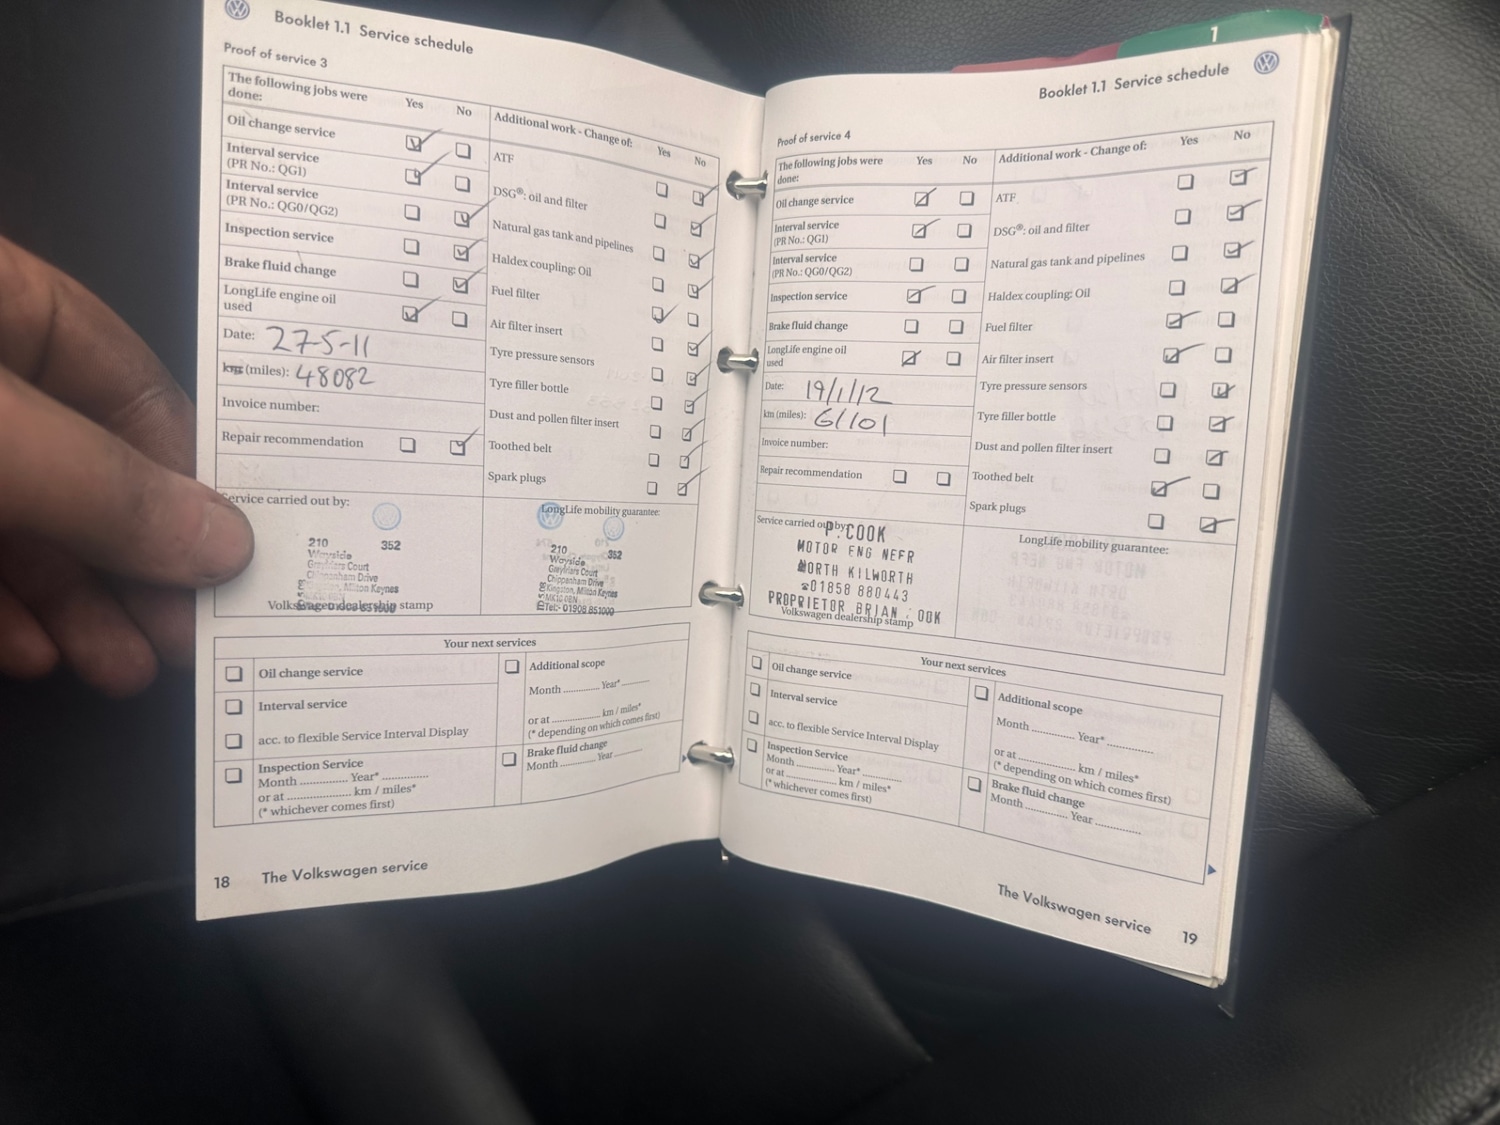 Booklet 1.1 Service schedule
Proof of service 3
The following jobs were done:
Yes
No
Oil change service
Interval service
(PR No.: QG1)
Interval service
(PR No.: QG0/QG2)
Inspection service
Brake fluid change
LongLife engine oil
used
Date: 27-5-11
km (miles): 48082
Invoice number:
Repair recommendation
Additional work - Change of:
Yes
No
ATF
DSG®: oil and filter
Natural gas tank and pipelines
Haldex coupling: Oil
Fuel filter
Air filter insert
Tyre pressure sensors
Tyre filler bottle
Dust and pollen filter insert
Toothed belt
Spark plugs
Service carried out by:
210 352
Wayside
Greyfriars Court
Chippenham Drive
Kingston, Milton Keynes
Volkswagen dealership stamp
LongLife mobility guarantee:
210 352
Wayside
Greyfriars Court
Chippenham Drive
Kingston, Milton Keynes
MK10 0BN
Tel:- 01908 851000
Your next services
Oil change service
Interval service
acc. to flexible Service Interval Display
Inspection Service
Month .............. Year* ..............
or at .................... km / miles*
(* whichever comes first)
Additional scope
Month .............. Year* ..............
or at .................... km / miles*
(* depending on which comes first)
Brake fluid change
Month .............. Year ..............
18 The Volkswagen service
1
Booklet 1.1 Service schedule
Proof of service 4
The following jobs were
done:
Yes
No
Oil change service
Interval service
(PR No.: QG1)
Interval service
(PR No.: QG0/QG2)
Inspection service
Brake fluid change
LongLife engine oil
used
Date: 19/1/12
km (miles): 61101
Invoice number:
Repair recommendation
Additional work - Change of:
Yes
No
ATF
DSG®: oil and filter
Natural gas tank and pipelines
Haldex coupling: Oil
Fuel filter
Air filter insert
Tyre pressure sensors
Tyre filler bottle
Dust and pollen filter insert
Toothed belt
Spark plugs
Service carried out by:
P. COOK
MOTOR ENG NEER
NORTH KILWORTH
☎01858 880443
PROPRIETOR BRIAN OOK
Volkswagen dealership stamp
LongLife mobility guarantee:
Your next services
Oil change service
Interval service
acc. to flexible Service Interval Display
Inspection Service
Month .............. Year* ..............
or at .................... km / miles*
(* whichever comes first)
Additional scope
Month .............. Year* ..............
or at .................... km / miles*
(* depending on which comes first)
Brake fluid change
Month .............. Year ..............
The Volkswagen service 19